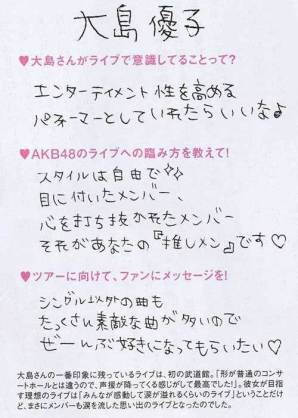 大島優子
♥大島さんがライブで意識してることって?
エンターテイメント性を高める
パフォーマーとしていれたらいいな♪
♥AKB48のライブへの臨み方を教えて!
スタイルは自由で✧✧
目に付いたメンバー、
心を打ち抜かれたメンバー
それがあなたの『推しメン』です♡
♥ツアーに向けて、ファンにメッセージを!
シングル以外の曲も
たっくさん素敵な曲が多いので
ぜーんぶ好きになってもらいたい♡
大島さんの一番印象に残っているライブは、初の武道館。「形が普通のコンサ
ートホールとは違うので、声援が降ってくる感じがして最高でした!」。彼女が目
指す理想のライブは「みんなが感動して涙が溢れるくらいのライブ」ということだけ
ど、まさにメンバーも涙を流した思い出のライブとなったのでした。